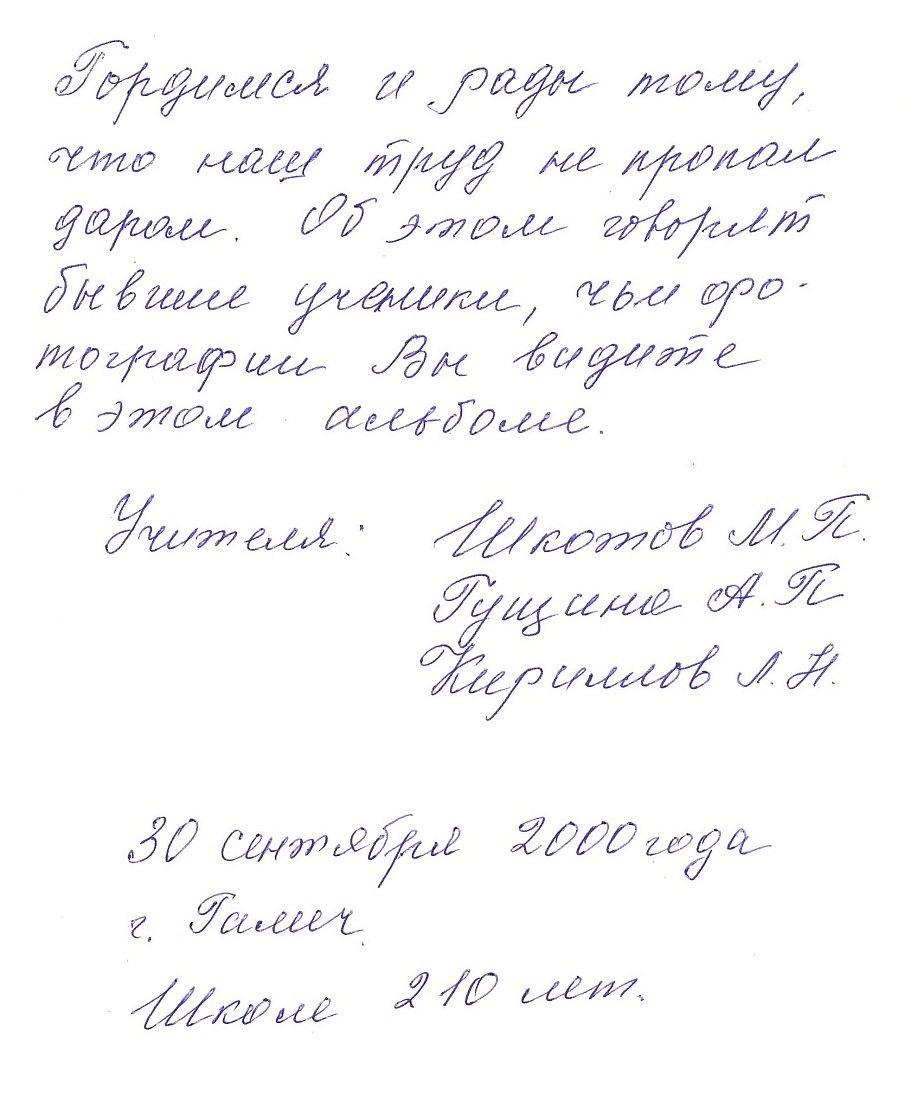 Гордимся и рады тому,
что наш труд не пропал
даром. Об этом говорят
бывшие ученики, чьи фо-
тографии Вы видите
в этом альбоме.
Учителя: Шкотов М.П.
Гущина А.П
Кириллов Л.Н.
30 сентября 2000 года
г. Галич
Школе 210 лет.